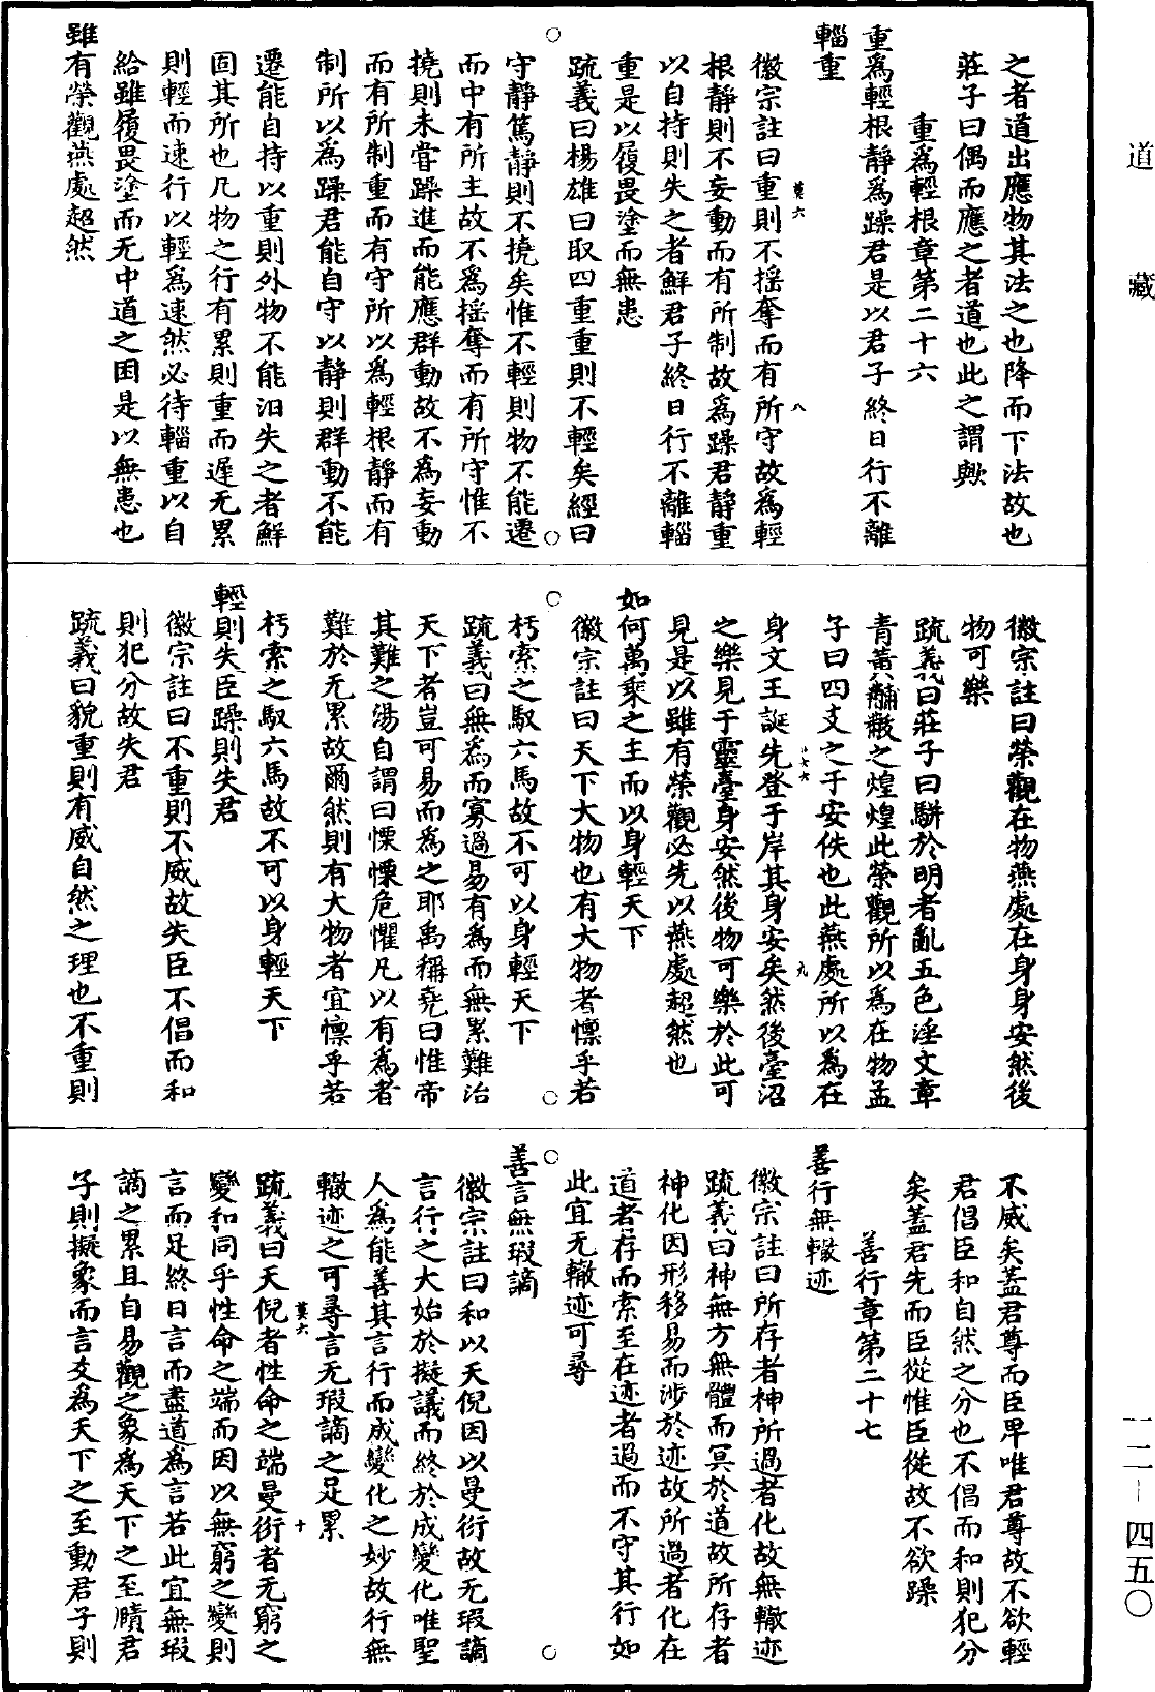 道藏
之者道出應物其法之也降而下法故也
莊子曰偶而應之者道也此之謂歟
重爲輕根章第二十六
重爲輕根靜爲躁君是以君子終日行不離
輜重
莫六
八
徽宗註曰重則不搖奪而有所守故爲輕
根靜則不妄動而有所制故爲躁君靜重
以自持則失之者鮮君子終日行不離輜
重是以履畏塗而無患
疏義曰楊雄曰取四重重則不輕矣經曰
守靜篤靜則不撓矣惟不輕則物不能遷
而中有所主故不爲搖奪而有所守惟不
撓則未嘗躁進而能應群動故不爲妄動
而有所制重而有守所以爲輕根靜而有
制所以爲躁君能自守以靜則群動不能
遷能自持以重則外物不能汩失之者鮮
固其所也凡物之行有累則重而遲无累
則輕而速行以輕爲速然必待輜重以自
給雖履畏塗而无中道之困是以無患也
雖有榮觀燕處超然
徽宗註曰榮觀在物燕處在身身安然後
物可樂
疏義曰莊子曰駢於明者亂五色淫文章
青黃黼黻之煌煌此榮觀所以爲在物孟
子曰四支之于安佚也此燕處所以爲在
九
身文王誕先登于岸其身安矣然後臺沼
之樂見于靈臺身安然後物可樂於此可
見是以雖有榮觀必先以燕處超然也
如何萬乘之主而以身輕天下
徽宗註曰天下大物也有大物者懍乎若
朽索之馭六馬故不可以身輕天下
疏義曰無爲而寡過易有爲而無累難治
天下者豈可易而爲之耶禹稱堯曰惟帝
其難之湯自謂曰慄慄危懼凡以有爲者
難於无累故爾然則有大物者宜懍乎若
朽索之馭六馬故不可以身輕天下
輕則失臣躁則失君
徽宗註曰不重則不威故失臣不倡而和
則犯分故失君
疏義曰貌重則有威自然之理也不重則
不威矣蓋君尊而臣卑唯君尊故不欲輕
君倡臣和自然之分也不倡而和則犯分
矣蓋君先而臣從惟臣從故不欲躁
善行章第二十七
善行無轍迹
徽宗註曰所存者神所過者化故無轍迹
疏義曰神無方無體而冥於道故所存者
神化因形移易而涉於迹故所過者化在
道者存而索至在迹者過而不守其行如
此宜无轍迹可尋
善言無瑕謫
徽宗註曰和以天倪因以曼衍故无瑕謫
言行之大始於擬議而終於成變化唯聖
人爲能善其言行而成變化之妙故行無
轍迹之可尋言无瑕謫之足累
莫六
十
疏義曰天倪者性命之端曼衍者无窮之
變和同乎性命之端而因以無窮之變則
言而足終日言而盡道爲言若此宜無瑕
謫之累且自易觀之象爲天下之至賾君
子則擬象而言爻爲天下之至動君子則
一二－四五〇